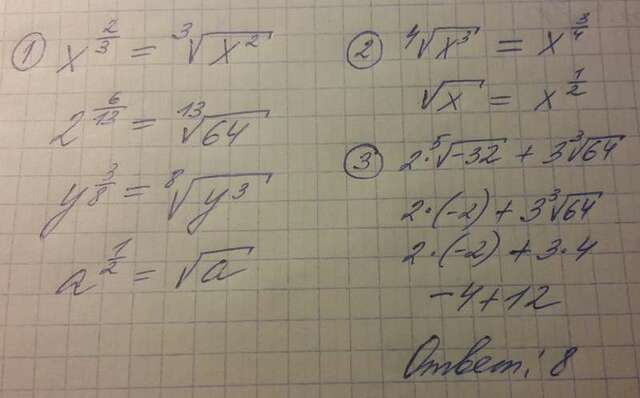 ① x^{2/3} = ∛(x²)
2^{6/13} = ¹³√64
y^{3/8} = ⁸√(y³)
a^{1/2} = √a
② ⁴√(x³) = x^{3/4}
√x = x^{1/2}
③ 2·⁵√(-32) + 3∛64
2·(-2) + 3∛64
2·(-2) + 3·4
-4+12
Ответ: 8